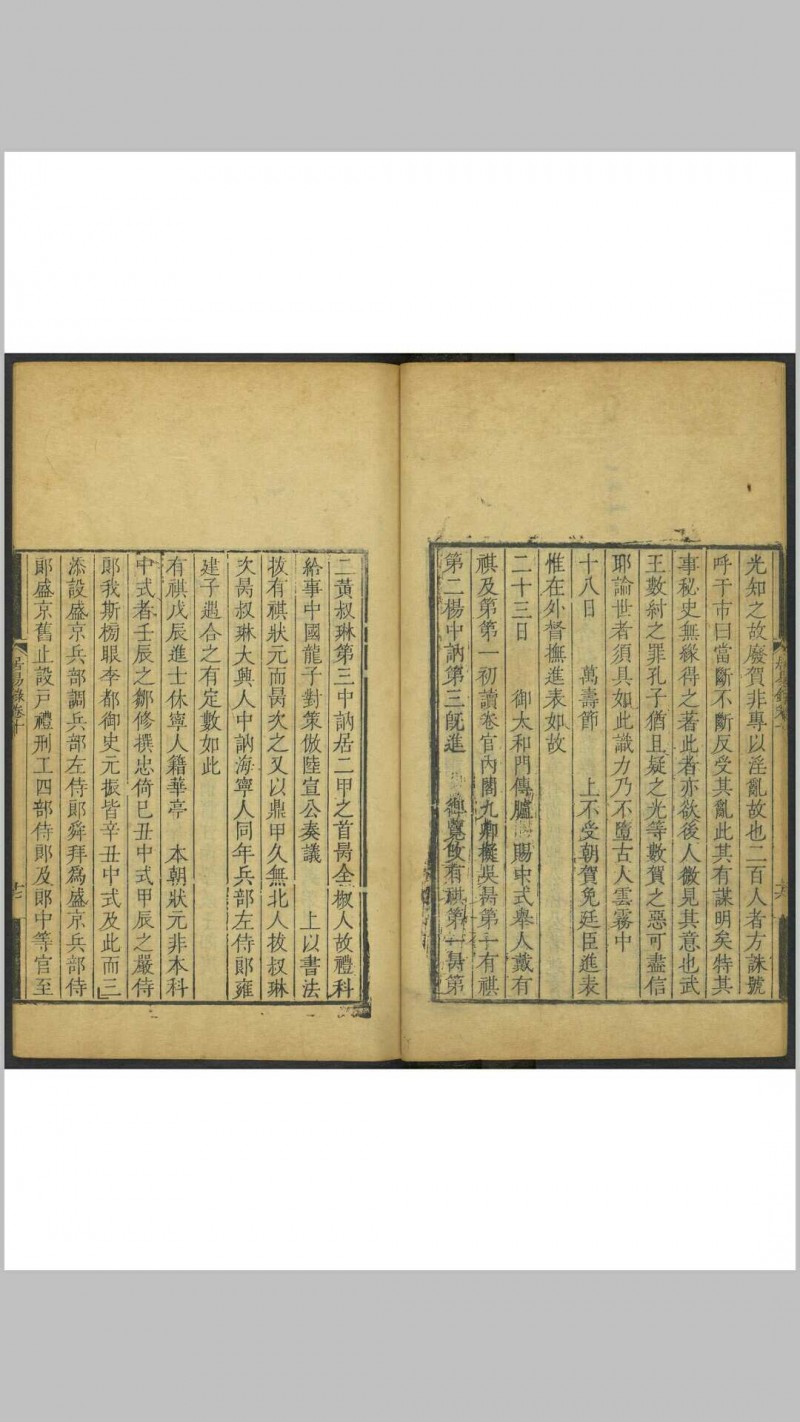 光知之故廢賀非專以淫亂故也二百人者方誅號
呼于市曰當斷不斷反受其亂此其有謀明矣特其
事秘史無緣得之著此者亦欲後人微見其意也武
王數紂之罪孔子猶且疑之光等數賀之惡可盡信
耶論世者須具如此識力乃不墮古人雲霧中
十八日 萬壽節 上不受朝賀免廷臣進表
惟在外督撫進表如故
二十三日 御太和門傳臚 賜中式舉人戴有
祺及第第一初讀卷官內閣九卿擬吳昺第一有祺
第二楊中訥第三旣進 御覽改有祺第一昺第
二黃叔琳第三中訥居二甲之首昺全椒人故禮科
給事中國龍子對策倣陸宣公奏議 上以書法
拔有祺狀元而昺次之又以鼎甲久無北人拔叔琳
次昺叔琳大興人中訥海寧人同年兵部左侍郞雍
建子遇合之有定數如此
有祺戊辰進士休寧人籍華亭 本朝狀元非本科
中式者壬辰之鄒修撰忠倚巳丑中式甲辰之嚴侍
郞我斯榜眼李都御史元振皆辛丑中式及此而三
添設盛京兵部調兵部左侍郞舜拜爲盛京兵部侍
郞盛京舊止設戶禮刑工四部侍郞及郞中等官至
居易錄卷十